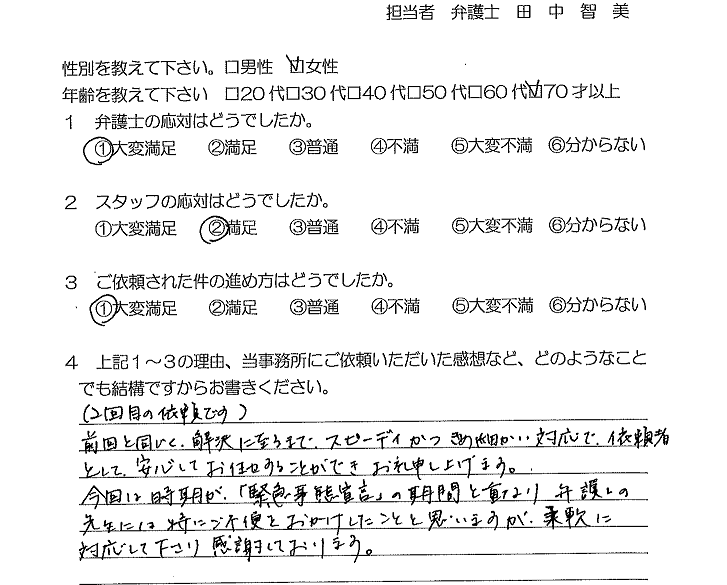 担当者 弁護士 田 中 智 美
性別を教えて下さい。□男性 ☑女性
年齢を教えて下さい □20代□30代□40代□50代□60代☑70才以上
1 弁護士の応対はどうでしたか。
①大変満足 ②満足 ③普通 ④不満 ⑤大変不満 ⑥分からない
2 スタッフの応対はどうでしたか。
①大変満足 ②満足 ③普通 ④不満 ⑤大変不満 ⑥分からない
3 ご依頼された件の進め方はどうでしたか。
①大変満足 ②満足 ③普通 ④不満 ⑤大変不満 ⑥分からない
4 上記1～3の理由、当事務所にご依頼いただいた感想など、どのようなこと
でも結構ですからお書きください。
(2回目の依頼です)
前回と同じく、解決に至るまで、スピーディかつきめ細かい対応で、依頼者
として、安心してお任せすることができお礼申し上げます。
今回は時期が、「緊急事態宣言」の期間と重なり弁護士の
先生には特にご不便をおかけしたことと思いますが、柔軟に
対応して下さり感謝しております。